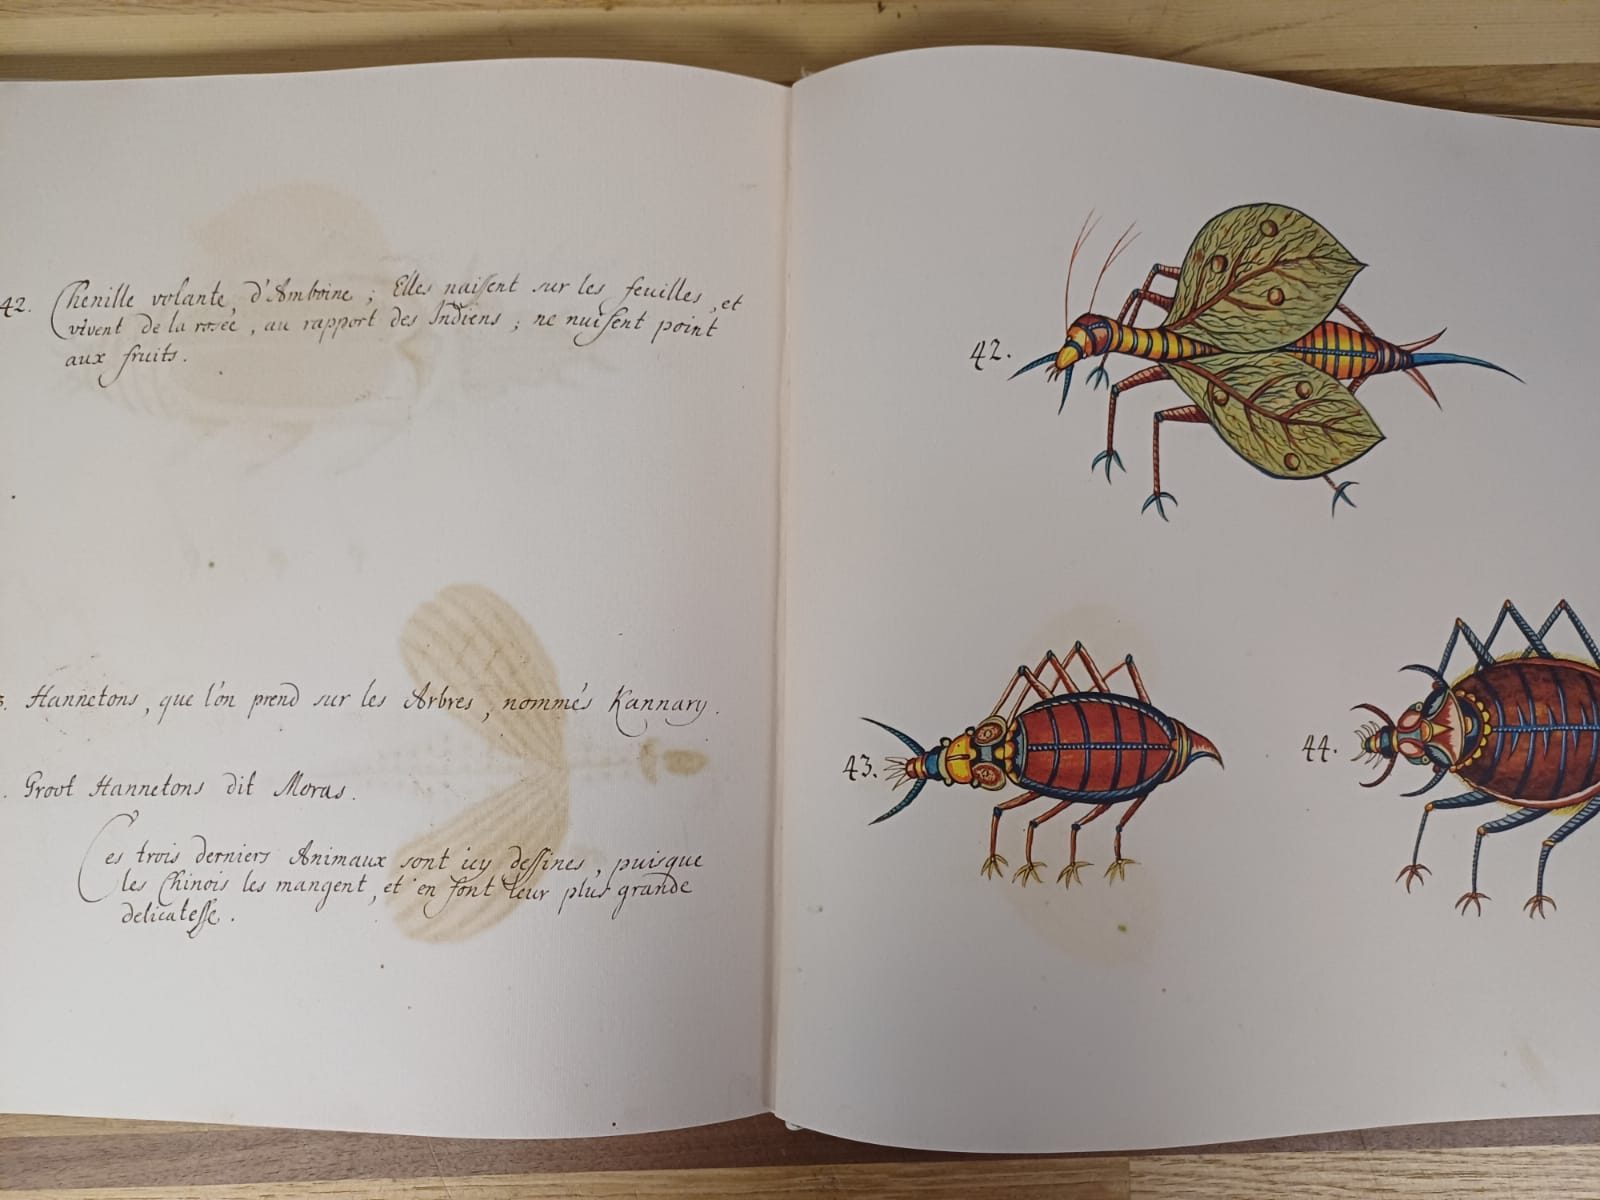 42. Chenille volante, d'Amboine ; Elles naissent sur les feuilles, et
vivent de la rosée, au rapport des Indiens ; ne nuisent point
aux fruits.
3. Hannetons, que l'on prend sur les Arbres, nommés Kannary.
. Groot Hannetons dit Moras.
Ces trois derniers Animaux sont icy dessines, puisque
les Chinois les mangent, et en font leur plus grande
delicatesse.
42.
43.
44.